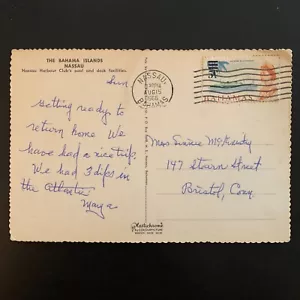 THE BAHAMA ISLANDS
NASSAU
Nassau Harbour Club's pool and dock facilities.
Sun
Getting ready to
return home We
have had a nice trip.
We had 3 dips in
the Atlantic
Mary a
NASSAU
AUG 15
1966
BAHAMAS
BAHAMAS
Miss Susie McGrady
147 Stearn Street
Bristol, Conn
Plastichrome